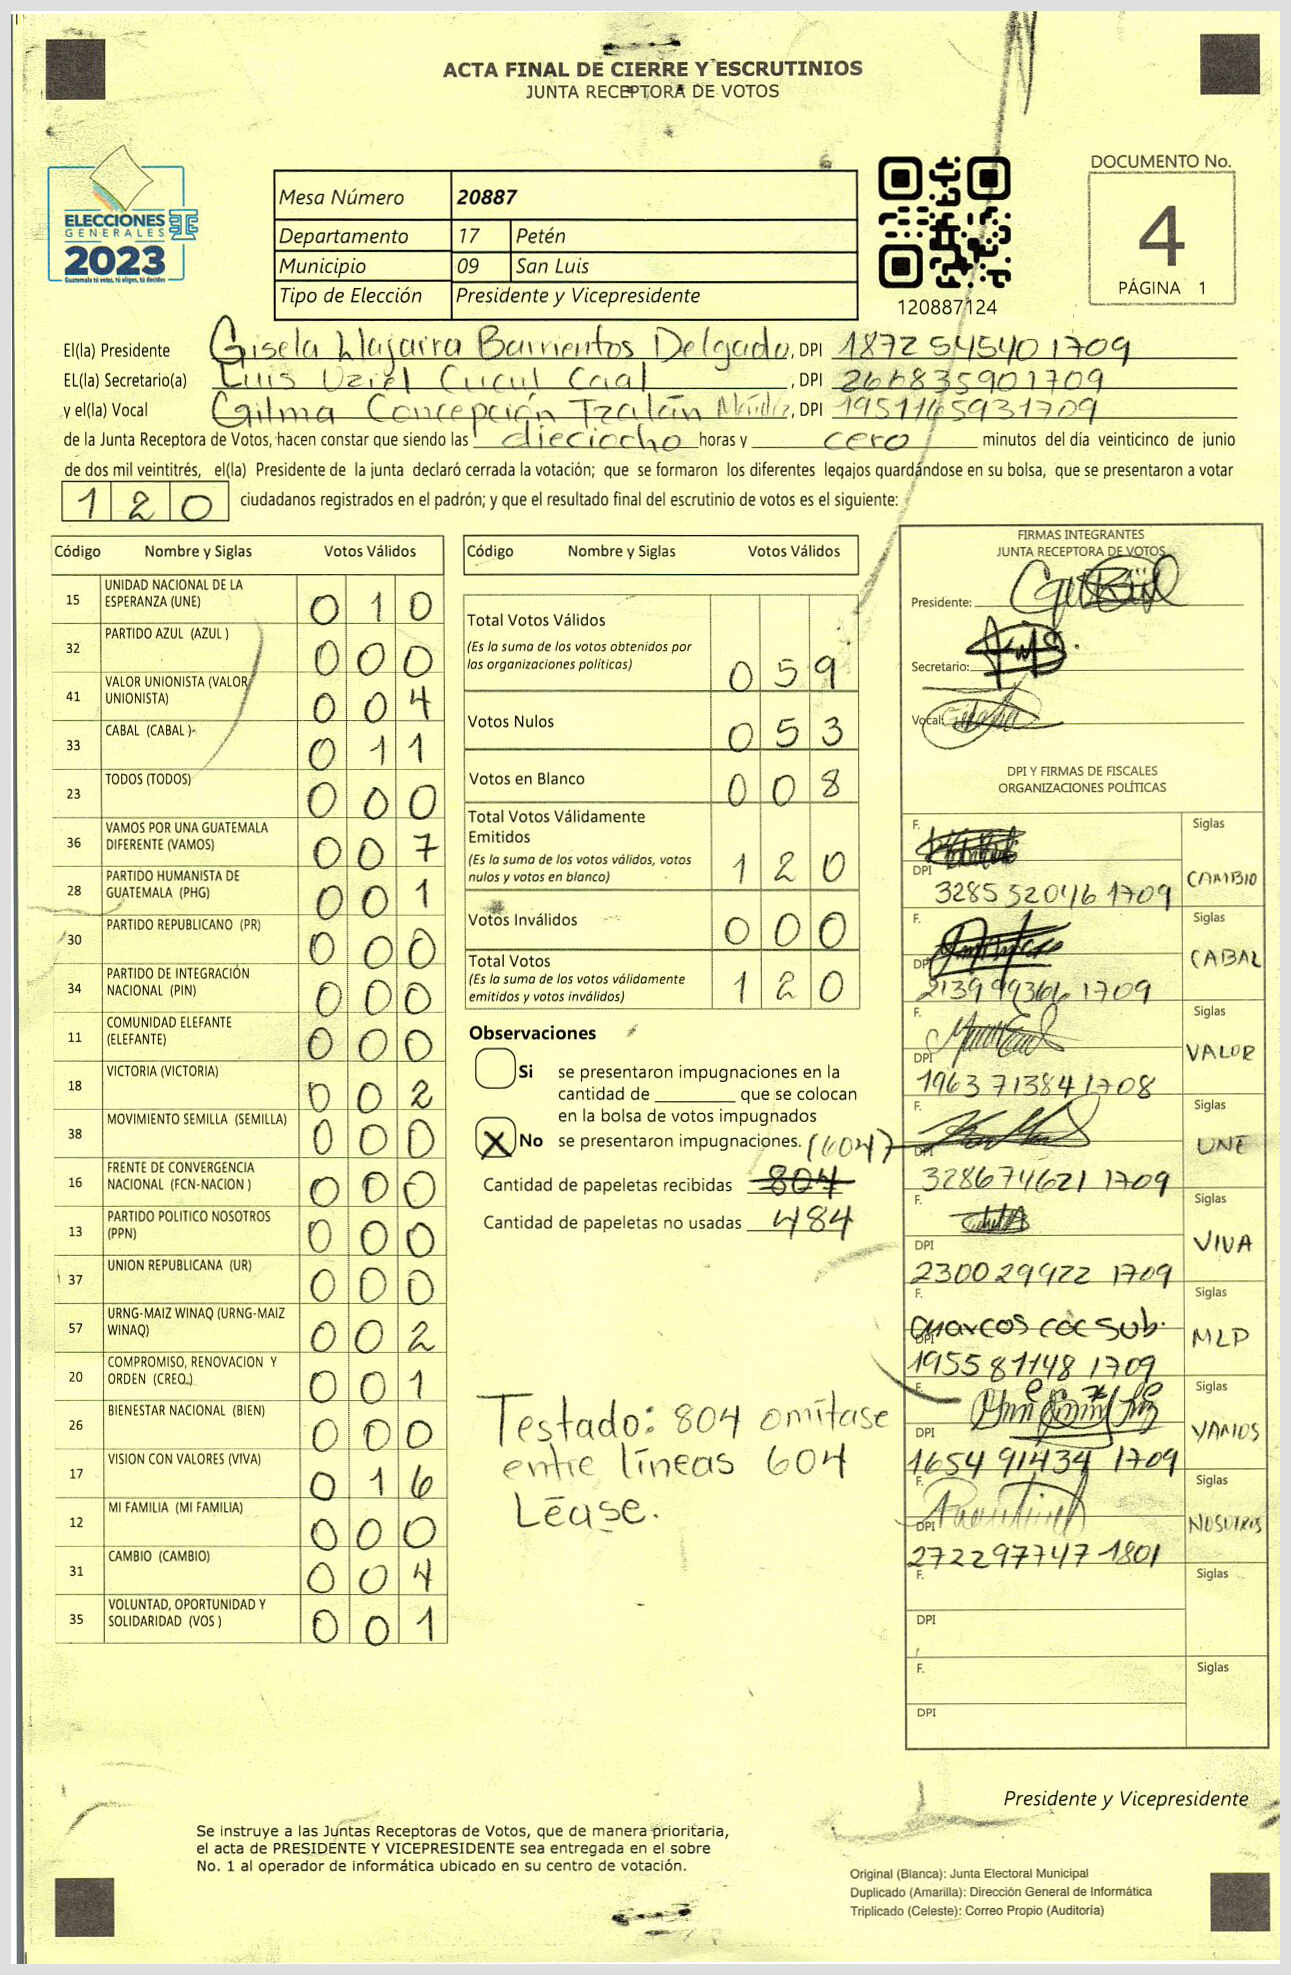 ACTA FINAL DE CIERRE Y ESCRUTINIOS
JUNTA RECEPTORA DE VOTOS
ELECCIONES
GENERALES
2023
Guatemala tú votes, tú eliges, tú decides
Mesa Número 20887
Departamento 17 Petén
Municipio 09 San Luis
Tipo de Elección Presidente y Vicepresidente
120887124
DOCUMENTO No.
4
PÁGINA 1
El(la) Presidente Gisela Barrientos Delgado, DPI 1872 54540 1709
EL(la) Secretario(a) Luis Uziel Cucul Caal, DPI 266835901709
y el(la) Vocal Gilma Concepción Tzalán Méndez, DPI 1951165931709
de la Junta Receptora de Votos, hacen constar que siendo las dieciocho horas y cero minutos del día veinticinco de junio
de dos mil veintitrés, el(la) Presidente de la junta declaró cerrada la votación; que se formaron los diferentes legajos guardándose en su bolsa, que se presentaron a votar
120 ciudadanos registrados en el padrón; y que el resultado final del escrutinio de votos es el siguiente:
Código Nombre y Siglas Votos Válidos
15 UNIDAD NACIONAL DE LA ESPERANZA (UNE) 0 1 0
32 PARTIDO AZUL (AZUL ) 0 0 0
41 VALOR UNIONISTA (VALOR UNIONISTA) 0 0 4
33 CABAL (CABAL ) 0 1 1
23 TODOS (TODOS) 0 0 0
36 VAMOS POR UNA GUATEMALA DIFERENTE (VAMOS) 0 0 7
28 PARTIDO HUMANISTA DE GUATEMALA (PHG) 0 0 1
30 PARTIDO REPUBLICANO (PR) 0 0 0
34 PARTIDO DE INTEGRACIÓN NACIONAL (PIN) 0 0 0
11 COMUNIDAD ELEFANTE (ELEFANTE) 0 0 0
18 VICTORIA (VICTORIA) 0 0 2
38 MOVIMIENTO SEMILLA (SEMILLA) 0 0 0
16 FRENTE DE CONVERGENCIA NACIONAL (FCN-NACION ) 0 0 0
13 PARTIDO POLITICO NOSOTROS (PPN) 0 0 0
37 UNION REPUBLICANA (UR) 0 0 0
57 URNG-MAIZ WINAQ (URNG-MAIZ WINAQ) 0 0 2
20 COMPROMISO, RENOVACION Y ORDEN (CREO) 0 0 1
26 BIENESTAR NACIONAL (BIEN) 0 0 0
17 VISION CON VALORES (VIVA) 0 1 6
12 MI FAMILIA (MI FAMILIA) 0 0 0
31 CAMBIO (CAMBIO) 0 0 4
35 VOLUNTAD, OPORTUNIDAD Y SOLIDARIDAD (VOS ) 0 0 1
Código Nombre y Siglas Votos Válidos
Total Votos Válidos
(Es la suma de los votos obtenidos por
las organizaciones políticas) 0 5 9
Votos Nulos 0 5 3
Votos en Blanco 0 0 8
Total Votos Válidamente
Emitidos
(Es la suma de los votos válidos, votos
nulos y votos en blanco) 1 2 0
Votos Inválidos 0 0 0
Total Votos
(Es la suma de los votos válidamente
emitidos y votos inválidos) 1 2 0
Observaciones
Si se presentaron impugnaciones en la
cantidad de ________ que se colocan
en la bolsa de votos impugnados
X No se presentaron impugnaciones. (604)
Cantidad de papeletas recibidas 804
Cantidad de papeletas no usadas 484
Testado: 804 omítase
entre líneas 604
Léase.
FIRMAS INTEGRANTES
JUNTA RECEPTORA DE VOTOS
Presidente:
Secretario:
Vocal:
DPI Y FIRMAS DE FISCALES
ORGANIZACIONES POLÍTICAS
F. Siglas
DPI 3285 52046 1709 CAMBIO
F. Siglas
DPI 2139 99366 1709 CABAL
F. Siglas
DPI 1963 71384 1708 VALOR
F. Siglas
DPI 3286 74621 1709 UNE
F. Siglas
DPI 2300 29922 1709 VIVA
F. Marcos coc sub. Siglas
DPI 1955 87148 1709 MLP
F. Siglas
DPI 1654 91434 1709 VAMOS
F. Siglas
DPI 2722 97747 1801 NOSOTROS
F. Siglas
DPI
F. Siglas
DPI
Presidente y Vicepresidente
Se instruye a las Juntas Receptoras de Votos, que de manera prioritaria,
el acta de PRESIDENTE Y VICEPRESIDENTE sea entregada en el sobre
No. 1 al operador de informática ubicado en su centro de votación.
Original (Blanca): Junta Electoral Municipal
Duplicado (Amarilla): Dirección General de Informática
Triplicado (Celeste): Correo Propio (Auditoría)